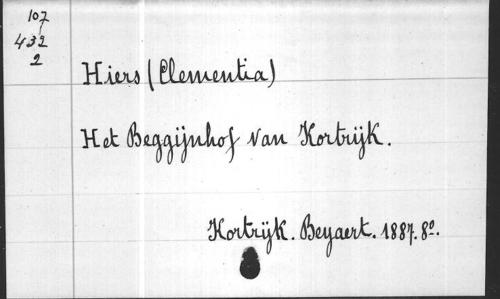 107
432
2
Hiers (Clementia)
Het Beggijnhof van Kortrijk.
Kortrijk. Beyaert. 1887. 8º.